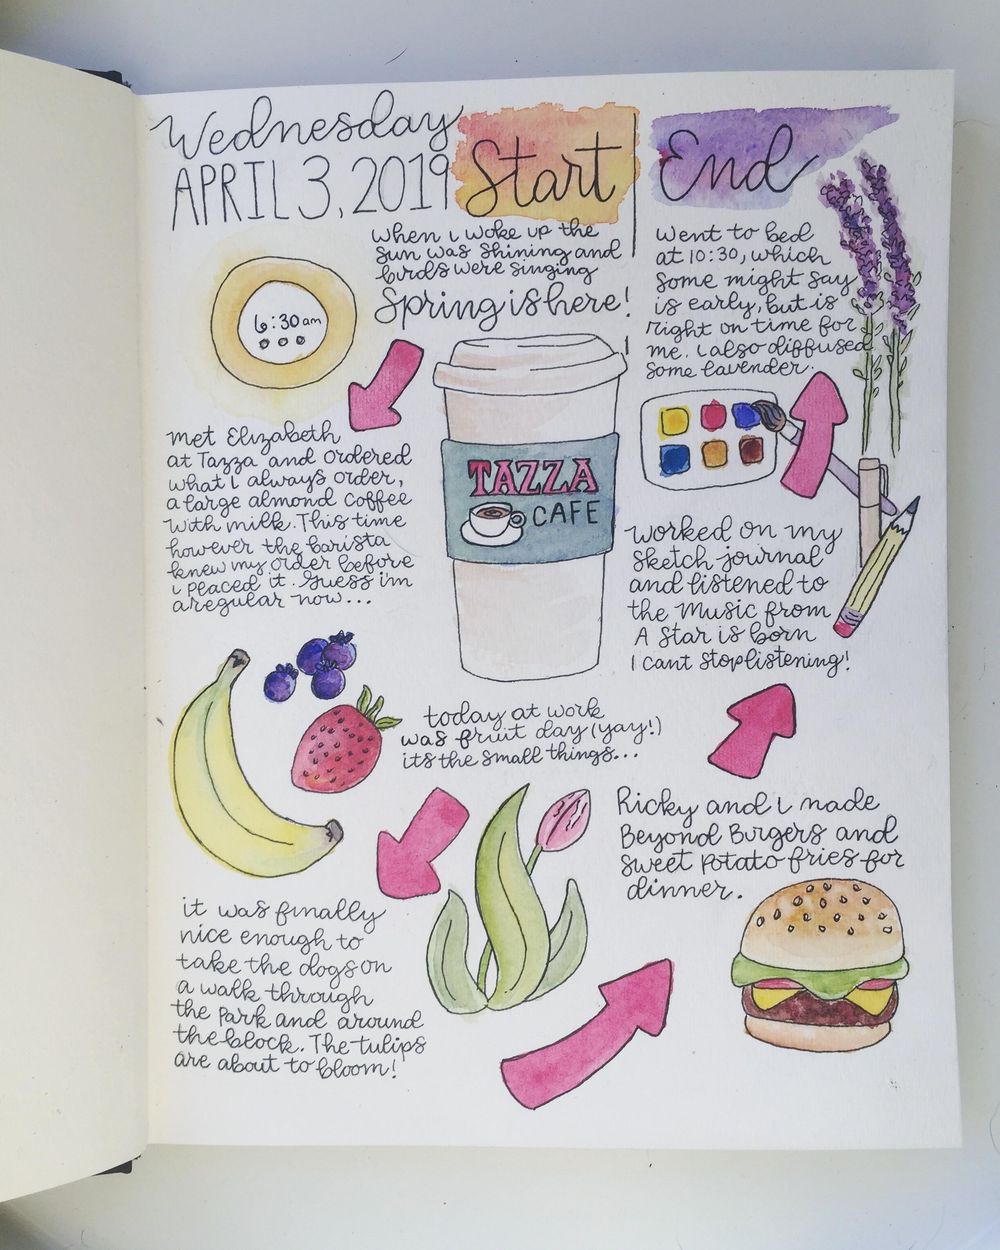 Wednesday
APRIL 3, 2019
Start
when i woke up the
sun was shining and
birds were singing
Spring is here!
6:30 am
met Elizabeth
at Tazza and ordered
what i always order,
a large almond coffee
with milk. This time
however the barista
knew my order before
i placed it. Guess i'm
a regular now...
TAZZA
CAFE
today at work
was fruit day (yay!)
its the small things...
it was finally
nice enough to
take the dogs on
a walk through
the park and around
the block. The tulips
are about to bloom!
Ricky and i made
Beyond Burgers and
sweet potato fries for
dinner.
worked on my
sketch-journal
and listened to
the music from
A Star is born
I cant stop listening!
End
went to bed
at 10:30, which
some might say
is early, but is
right on time for
me. i also diffused
some lavender.